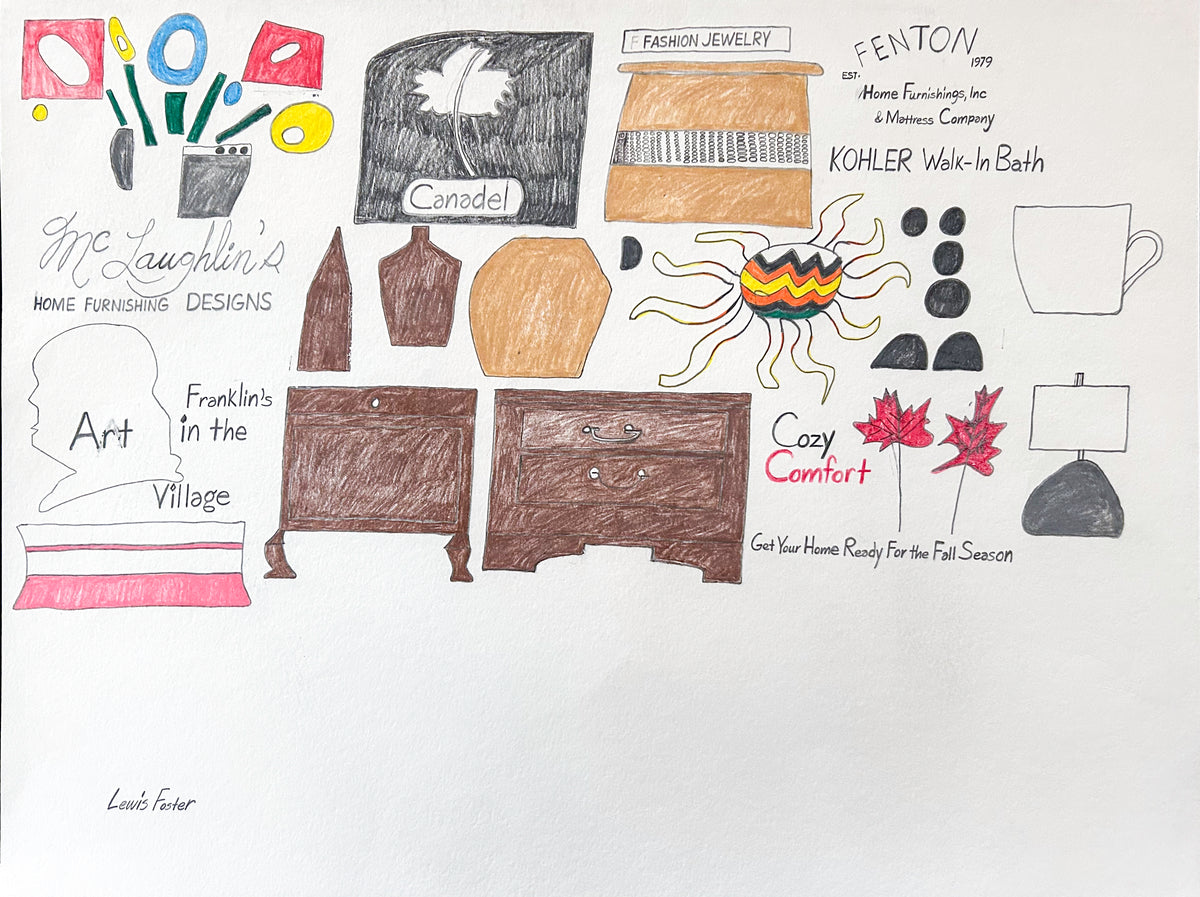 FASHION JEWELRY
FENTON
EST. 1979
Home Furnishings, Inc
& Mattress Company
KOHLER Walk-In Bath
Canadel
McLaughlin's
HOME FURNISHING DESIGNS
Art
Franklin's
in the
Village
Cozy
Comfort
Get Your Home Ready For the Fall Season
Lewis Foster